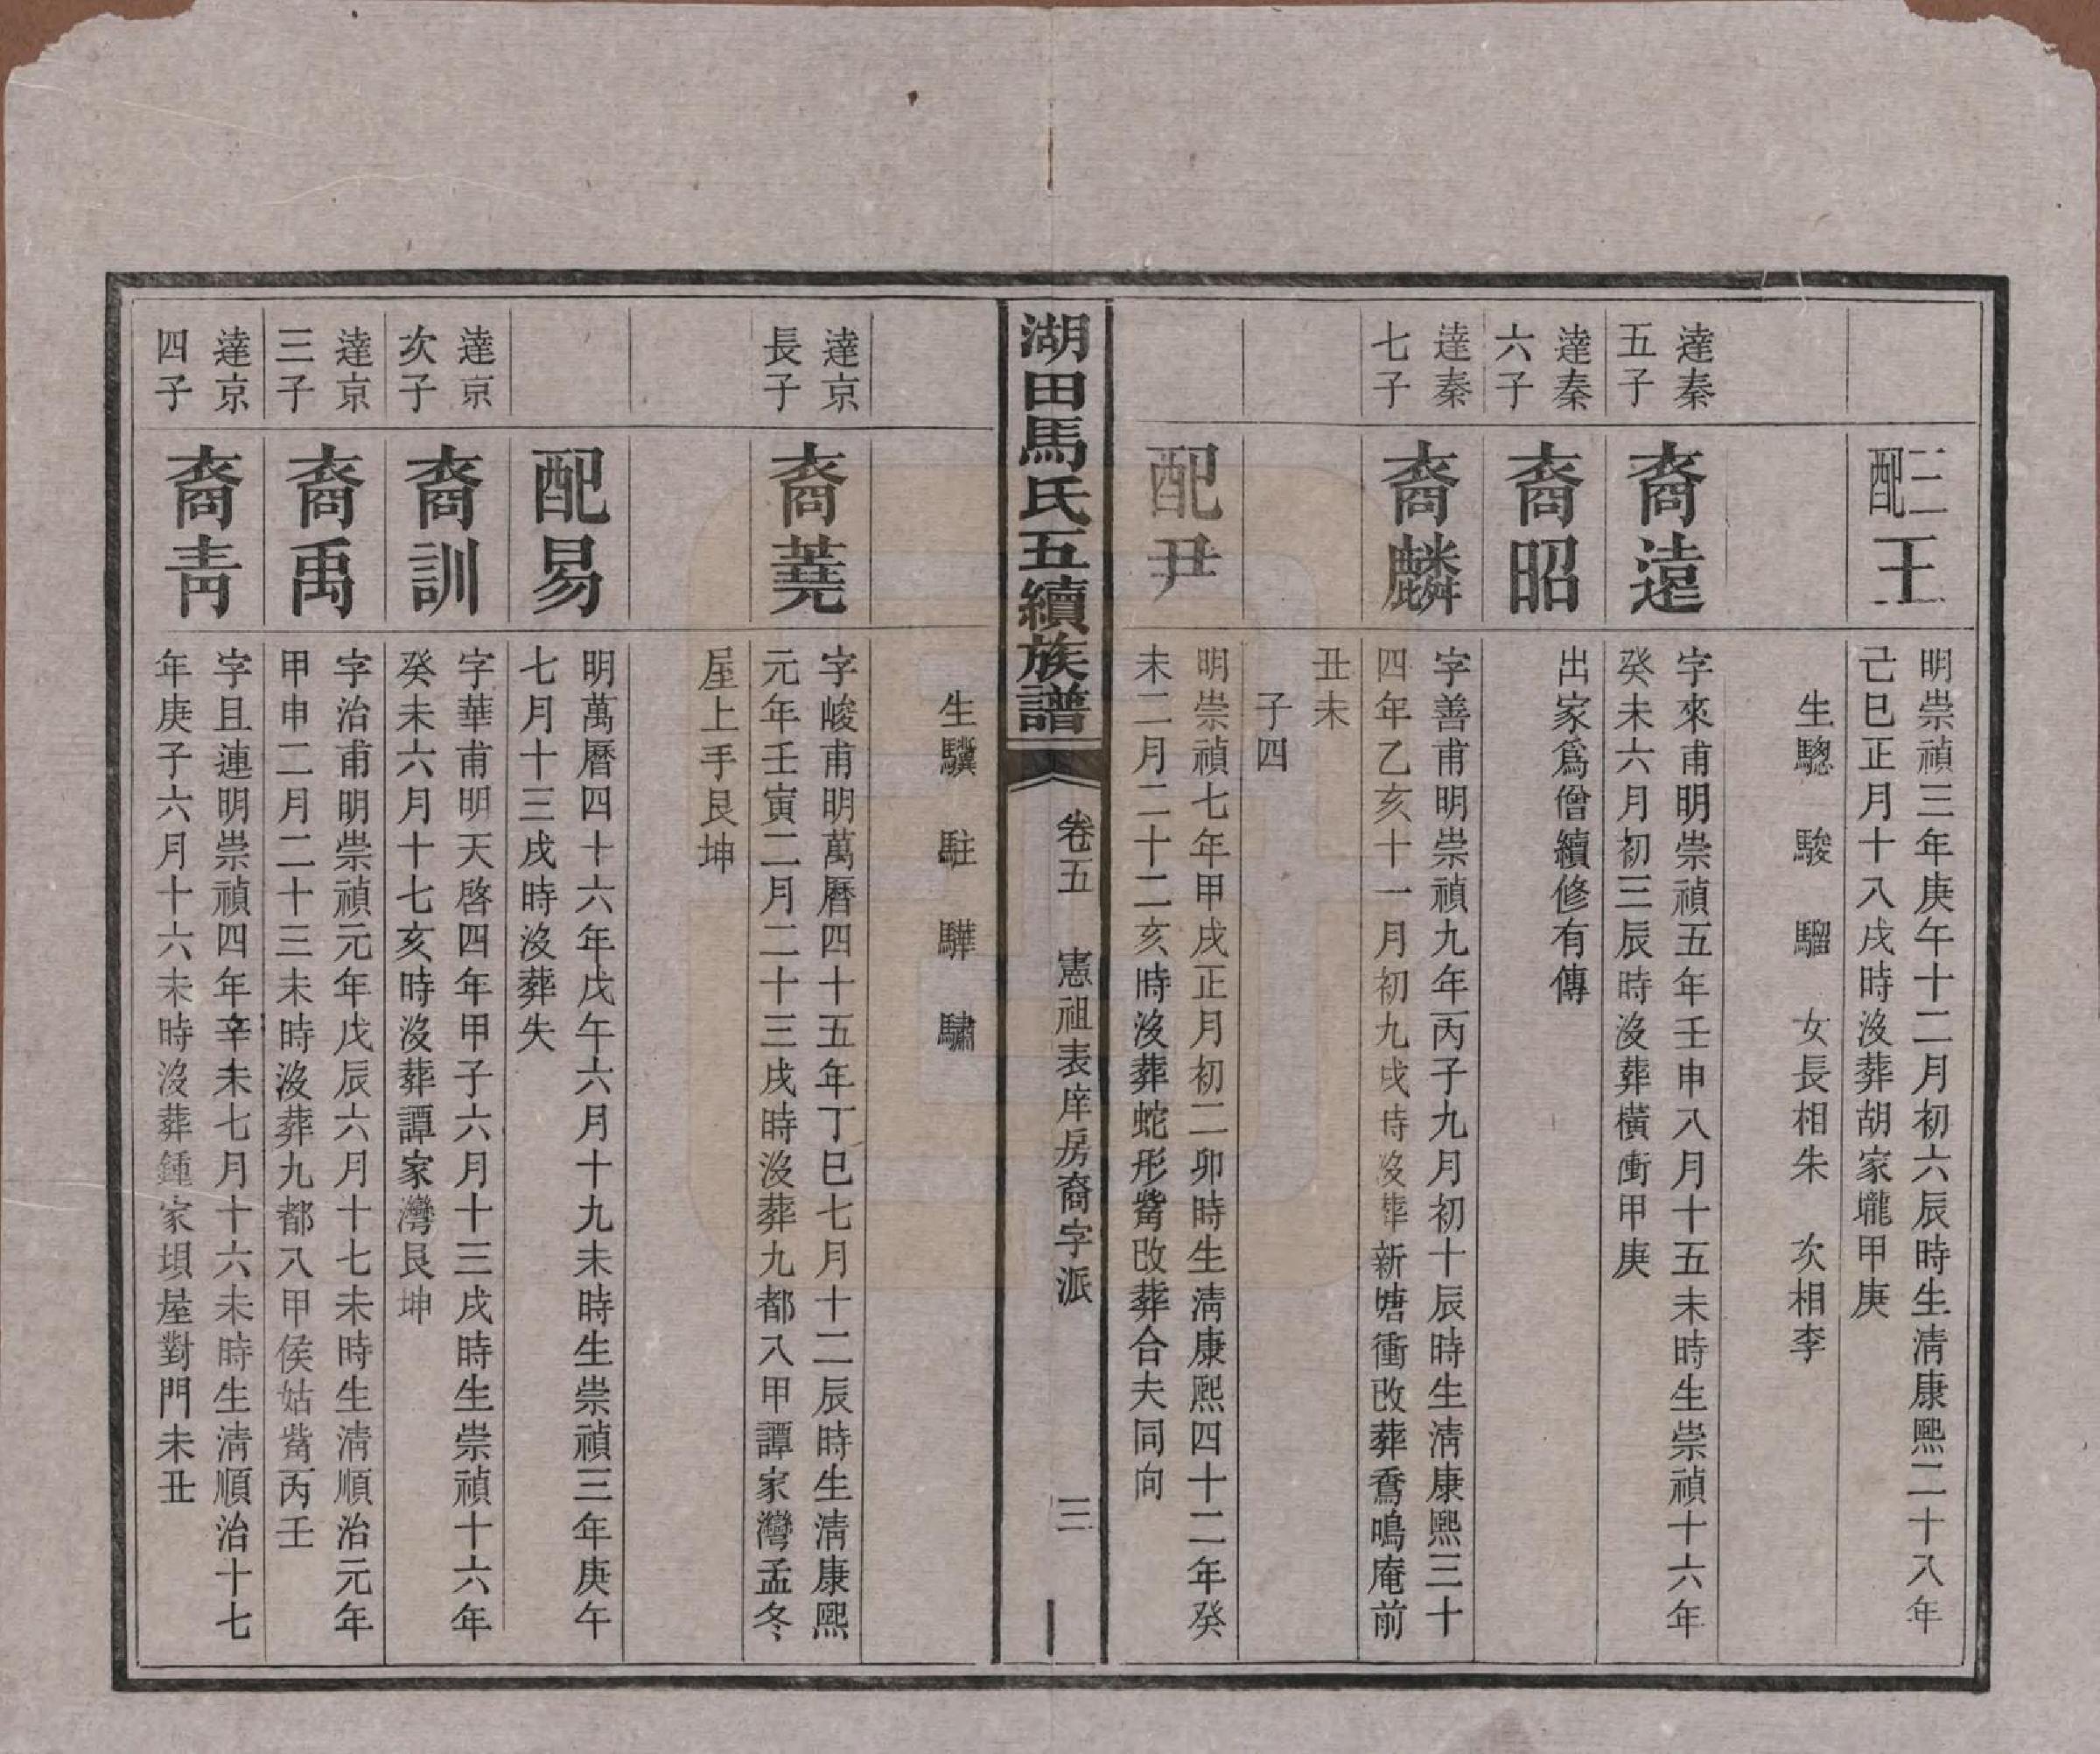 三配王
明崇禎三年庚午十二月初六辰時生淸康熙二十八年
己巳正月十八戌時沒葬胡家壠甲庚
生驄　駿　騮　女長相朱　次相李
達秦
五子
裔遠
字來甫明崇禎五年壬申八月十五未時生崇禎十六年
癸未六月初三辰時沒葬橫衝甲庚
達秦
六子
裔昭
出家爲僧續修有傳
達秦
七子
裔麟
字善甫明崇禎九年丙子九月初十辰時生淸康熙三十
四年乙亥十一月初九戌時沒葬新塘衝改葬喬鳴庵前
丑未
子四
配尹
明崇禎七年甲戌正月初二卯時生淸康熙四十二年癸
未二月二十二亥時沒葬蛇形觜改葬合夫同向
湖田馬氏五續族譜　卷五　憲祖表庠房裔字派　三
生驥　駐　驊　驌
達京
長子
裔蕘
字峻甫明萬曆四十五年丁巳七月十二辰時生淸康熙
元年壬寅二月二十三戌時沒葬九都八甲譚家灣孟冬
屋上手艮坤
配易
明萬曆四十六年戊午六月十九未時生崇禎三年庚午
七月十三戌時沒葬失
達京
次子
裔訓
字華甫明天啓四年甲子六月十三戌時生崇禎十六年
癸未六月十七亥時沒葬譚家灣艮坤
達京
三子
裔禹
字治甫明崇禎元年戊辰六月十七未時生淸順治元年
甲申二月二十三未時沒葬九都八甲侯姑觜丙壬
達京
四子
裔靑
字且連明崇禎四年辛未七月十六未時生淸順治十七
年庚子六月十六未時沒葬鍾家垻屋對門未丑